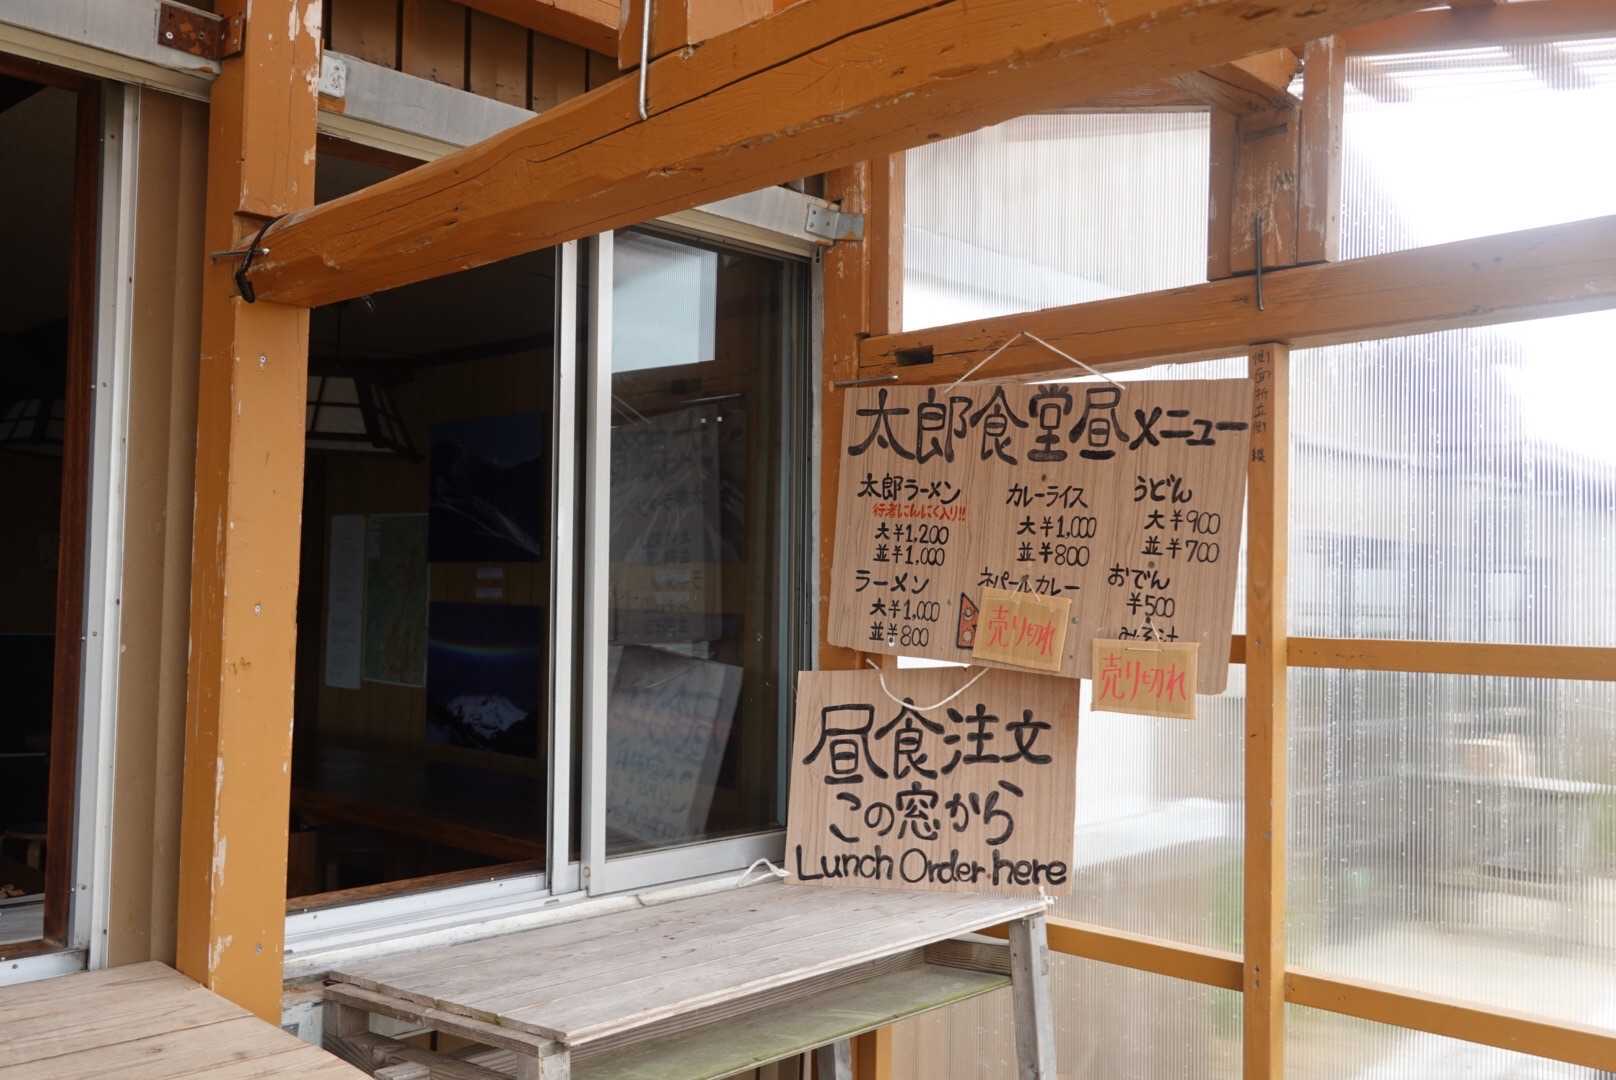 太郎食堂昼メニュー
太郎ラーメン
行者にんにく入り!!
大¥1,200
並¥1,000
ラーメン
大¥1,000
並¥800
カレーライス
大¥1,000
並¥800
ネパールカレー
売り切れ
うどん
大¥900
並¥700
おでん
¥500
みそ汁
売り切れ
昼食注文
この窓から
Lunch Order here